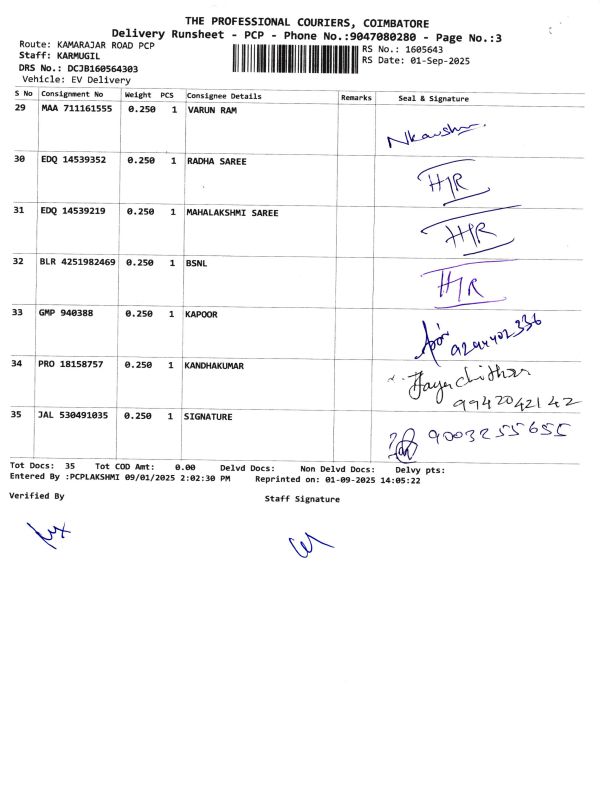 THE PROFESSIONAL COURIERS, COIMBATORE
Delivery Runsheet - PCP - Phone No.:9047080280 - Page No.:3
Route: KAMARAJAR ROAD PCP
RS No.: 1605643
Staff: KARMUGIL
RS Date: 01-Sep-2025
DRS No.: DCJB160564303
Vehicle: EV Delivery
S No Consignment No Weight PCS Consignee Details Remarks Seal & Signature
29 MAA 711161555 0.250 1 VARUN RAM
30 EDQ 14539352 0.250 1 RADHA SAREE
31 EDQ 14539219 0.250 1 MAHALAKSHMI SAREE
32 BLR 4251982469 0.250 1 BSNL
33 GMP 940388 0.250 1 KAPOOR
34 PRO 18158757 0.250 1 KANDHAKUMAR
9942042142
35 JAL 530491035 0.250 1 SIGNATURE
9003255655
Tot Docs: 35 Tot COD Amt: 0.00 Delvd Docs: Non Delvd Docs: Delvy pts:
Entered By :PCPLAKSHMI 09/01/2025 2:02:30 PM Reprinted on: 01-09-2025 14:05:22
Verified By Staff Signature